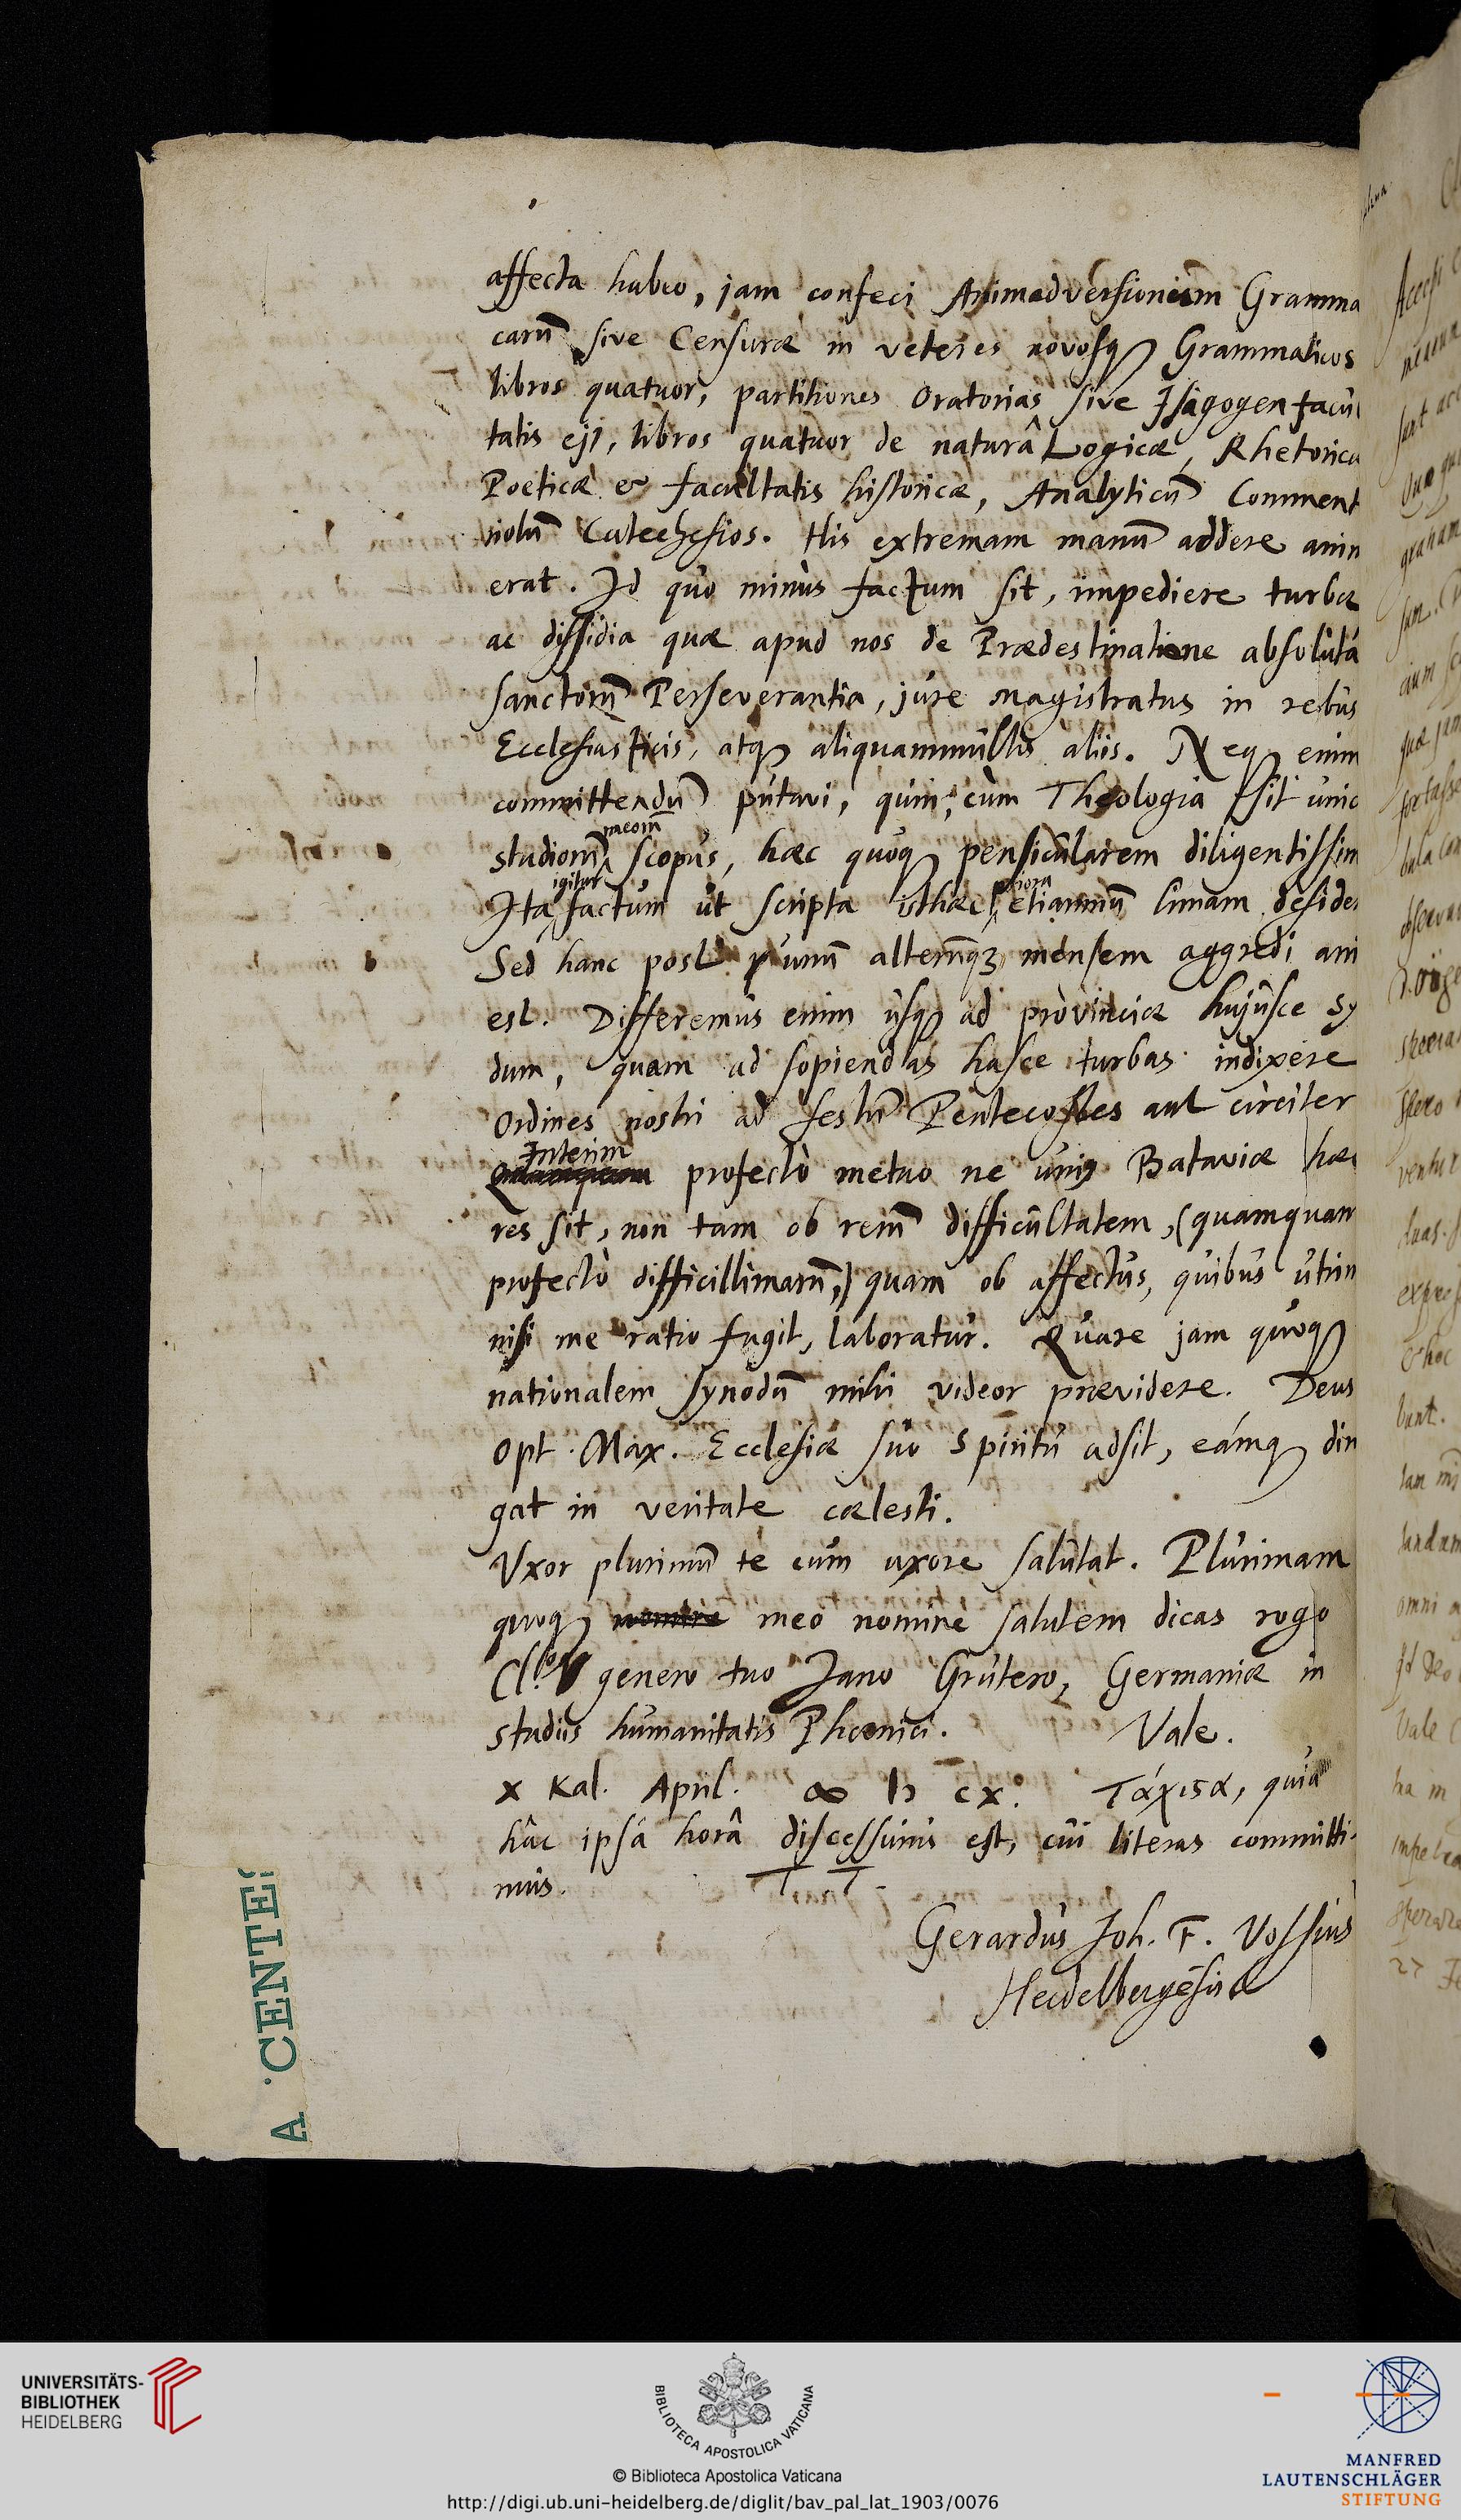 affecta habeo, jam confeci Animadversionum Gramma
carū sive Censuræ in veteres novosq; Grammaticos
libros quatuor, partitiones Oratorias sive Isagogen facul
tatis ej9, libros quatuor de naturâ Logicæ, Rhetoricæ
Poeticæ & facultatis historicæ, Analyticū Comment
riolū Catecheseos. His extremam manū addere anim
erat. Id quo minùs factum sit, impediere turbæ
ac dissidia quæ apud nos de Prædestinatione absolutâ
sanctorū Perseverantia, jure magistratus in rebus
Ecclesiasticis, atq; aliquammultis aliis. Neq; enim
committendū putavi, quin, cùm Theologia sit unic
meorū
studiorū scopus, hæc quoq; pensicularem diligentissim
igitur priora
Ita factum ut scripta isthæc etiamnū limam desider
Sed hanc post unū alterūq3 mensem aggredi ani
est. Differemus enim usq; ad provinciæ hujusce Sy
dum, quam ad sopiendas hasce turbas indixere
Ordines nostri ad festū Pentecostes aut circiter
Interim
Quamquam profectò metuo ne uni9 Bataviæ hæc
res sit, non tam ob rerū difficultatem, (quamquam
profectò difficillimarū,) quam ob affectus, quibus utrim
nisi me ratio fugit, laboratur. Quare jam quoq;
nationalem synodū mihi videor prævidere. Deus
Opt. Max. Ecclesiæ suo Spiritu adsit, eámq; diri
gat in veritate cælesti.
Vxor plurimū te cum uxore salutat. Plurimam
quoq; nomine meo nomine salutem dicas rogo
Cl.mo genero tuo Jano Grutero, Germaniæ in
studiis humanitatis Phœnici. Vale.
X Kal. April. ∞ IƆ CX. Τάχιϛα, quia
hâc ipsâ horâ discessurus est, cui literas committi-
mus. T. T.
Gerardus Joh. F. Vossius
Heidelbergēsis
A · CENTE
UNIVERSITÄTS-
BIBLIOTHEK
HEIDELBERG
BIBLIOTECA APOSTOLICA VATICANA
© Biblioteca Apostolica Vaticana
http://digi.ub.uni-heidelberg.de/diglit/bav_pal_lat_1903/0076
MANFRED
LAUTENSCHLÄGER
STIFTUNG